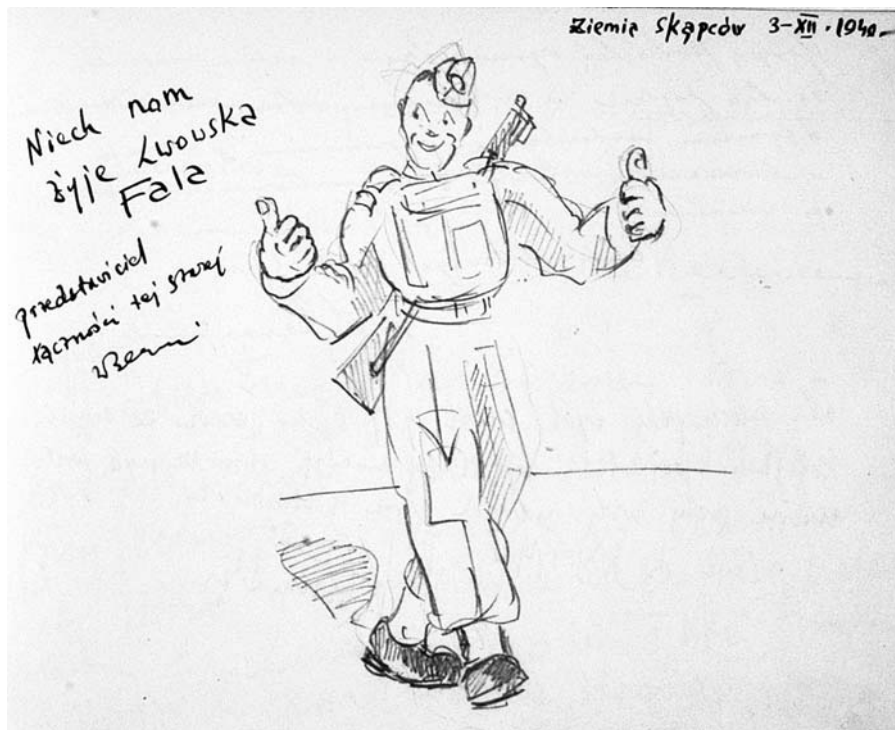 Ziemia Skąpców 3-XII.1940
Niech nam
żyje Lwowska
Fala
przedstawiciel
łączności tej starej